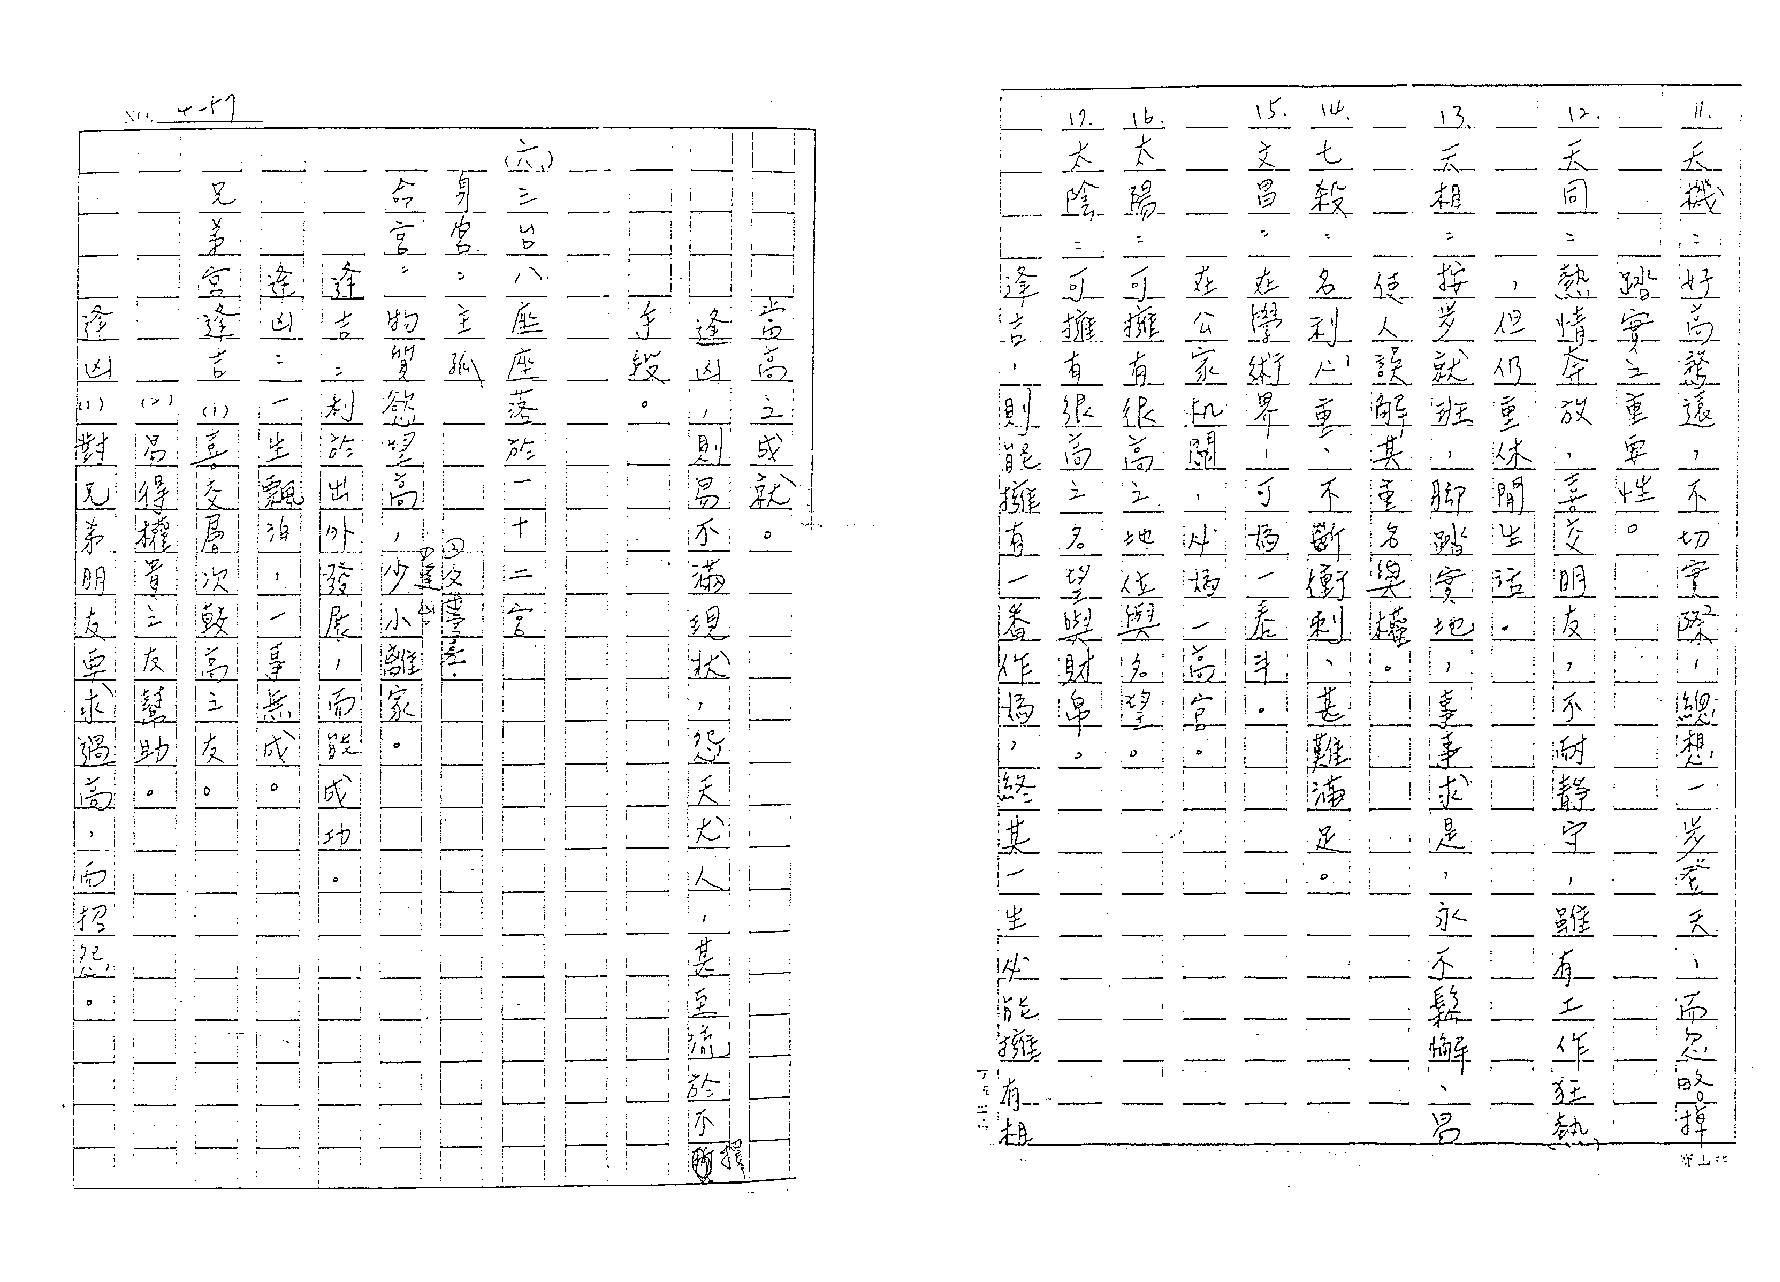 11. 天機：好高騖遠，不切實際，總想一步登天，而忽略掉
踏實之重要性。
12. 天同：熱情奔放，喜交朋友，不耐靜守，雖有工作狂熱
，但仍重休閒生活。
13. 天相：按步就班，脚踏實地，事事求是，永不鬆懈、易
使人誤解其重名與權。
14. 七殺：名利心重、不斷衝刺、甚難滿足。
15. 文昌：在學術界，可為一泰斗。
在公家机關，必為一高官。
16. 太陽：可擁有很高之地位與名望。
17. 太陰：可擁有很高之名望與財帛。
逢吉，則能擁有一番作為，終其一生必能擁有相
NO. 4-57
當高之成就。
逢凶，則易不滿現狀，怨天尤人，甚至流於不擇
手段。
(六) 三台八座座落於一十二宮
身宮：主孤
命宮：物質慾望高，少小離家。
逢吉：利於出外發展，而能成功。
逢凶：一生飄泊，一事無成。
兄弟宮逢吉(1)喜交層次較高之友。
(2)易得權貴之友幫助。
逢凶(1)對兄弟朋友要求過高，而招怨。